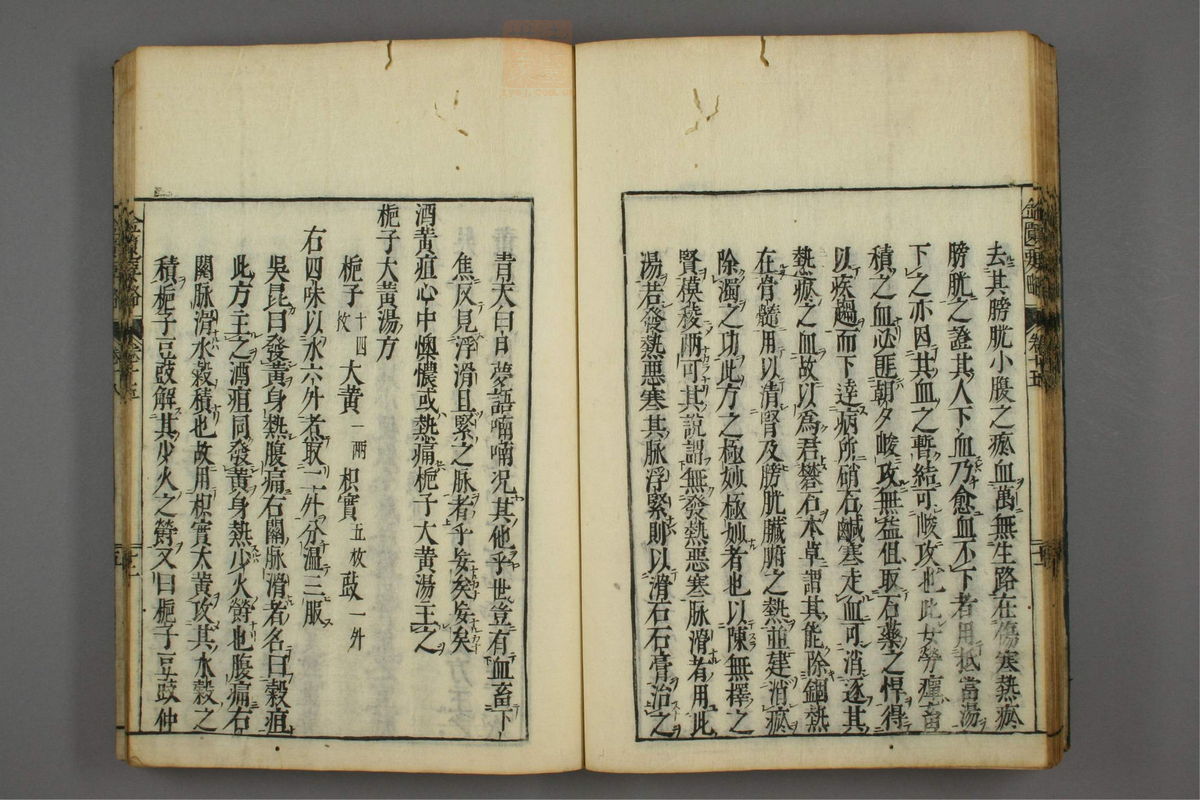 去其膀胱小腹之瘀血萬無生路在傷寒熱瘀
膀胱之證其人下血乃愈血不下者用抵當湯
下之亦因其血之暫結可峻攻也此女勞癉畜
積之血必匪朝夕峻攻無益但取石藥之悍得
以疾趨而下達病所硝石鹹寒走血可消逐其
熱瘀之血故以爲君礬石本草謂其能除錮熱
在骨髓用以清腎及膀胱臟腑之熱並建消瘀
除濁之功此方之極妙極妙者也以陳無擇之
賢模稜兩可其說謂無發熱惡寒脉滑者用此
湯若發熱惡寒其脉浮緊則以滑石石膏治之
青天白日夢語喃喃况其他乎世豈有血畜下
焦反見浮滑且緊之脉者乎妄矣妄矣
酒黄疸心中懊憹或熱痛梔子大黄湯主之
梔子大黄湯方
梔子十四枚 大黄一兩 枳實五枚 豉一升
右四味以水六升煮取二升分溫三服
吳昆曰發黄身熱腹痛右關脉滑者名曰穀疸
此方主之酒疸同發黄身熱少火鬱也腹痛右
關脉滑水穀積也故用枳實大黄攻其水穀之
積梔子豆豉解其少火之鬱又曰梔子豆豉仲